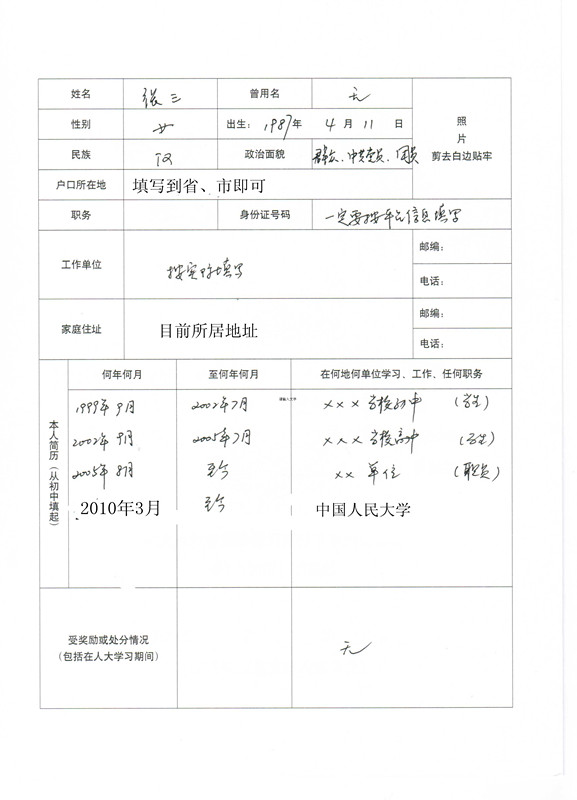 姓名 张三 曾用名 无
性别 女 出生: 1987年 4月11日
照
片
剪去白边贴牢
民族 汉 政治面貌 群众、中共党员、团员
户口所在地 填写到省、市即可
职务 身份证号码 一定要按本人信息填写
工作单位 按实际填写
邮编:
电话:
家庭住址 目前所居地址
邮编:
电话:
本人简历(从初中填起)
何年何月 至何年何月 在何地何单位学习、工作、任何职务
1999年9月 2002年7月 ××× 学校初中 (学生)
2002年9月 2005年7月 ××× 学校高中 (学生)
2005年8月 至今 ×× 单位 (职员)
2010年3月 至今 中国人民大学
受奖励或处分情况
(包括在人大学习期间)
无